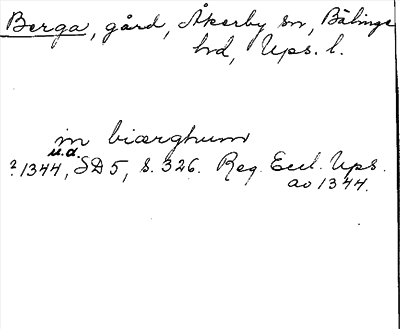 Berga, gård, Åkerby sn, Bälinge
hd, Ups. l.
in biærghum
u.a.
? 1344, SD 5, s. 326. Reg. Eccl. Ups.
ao 1344.